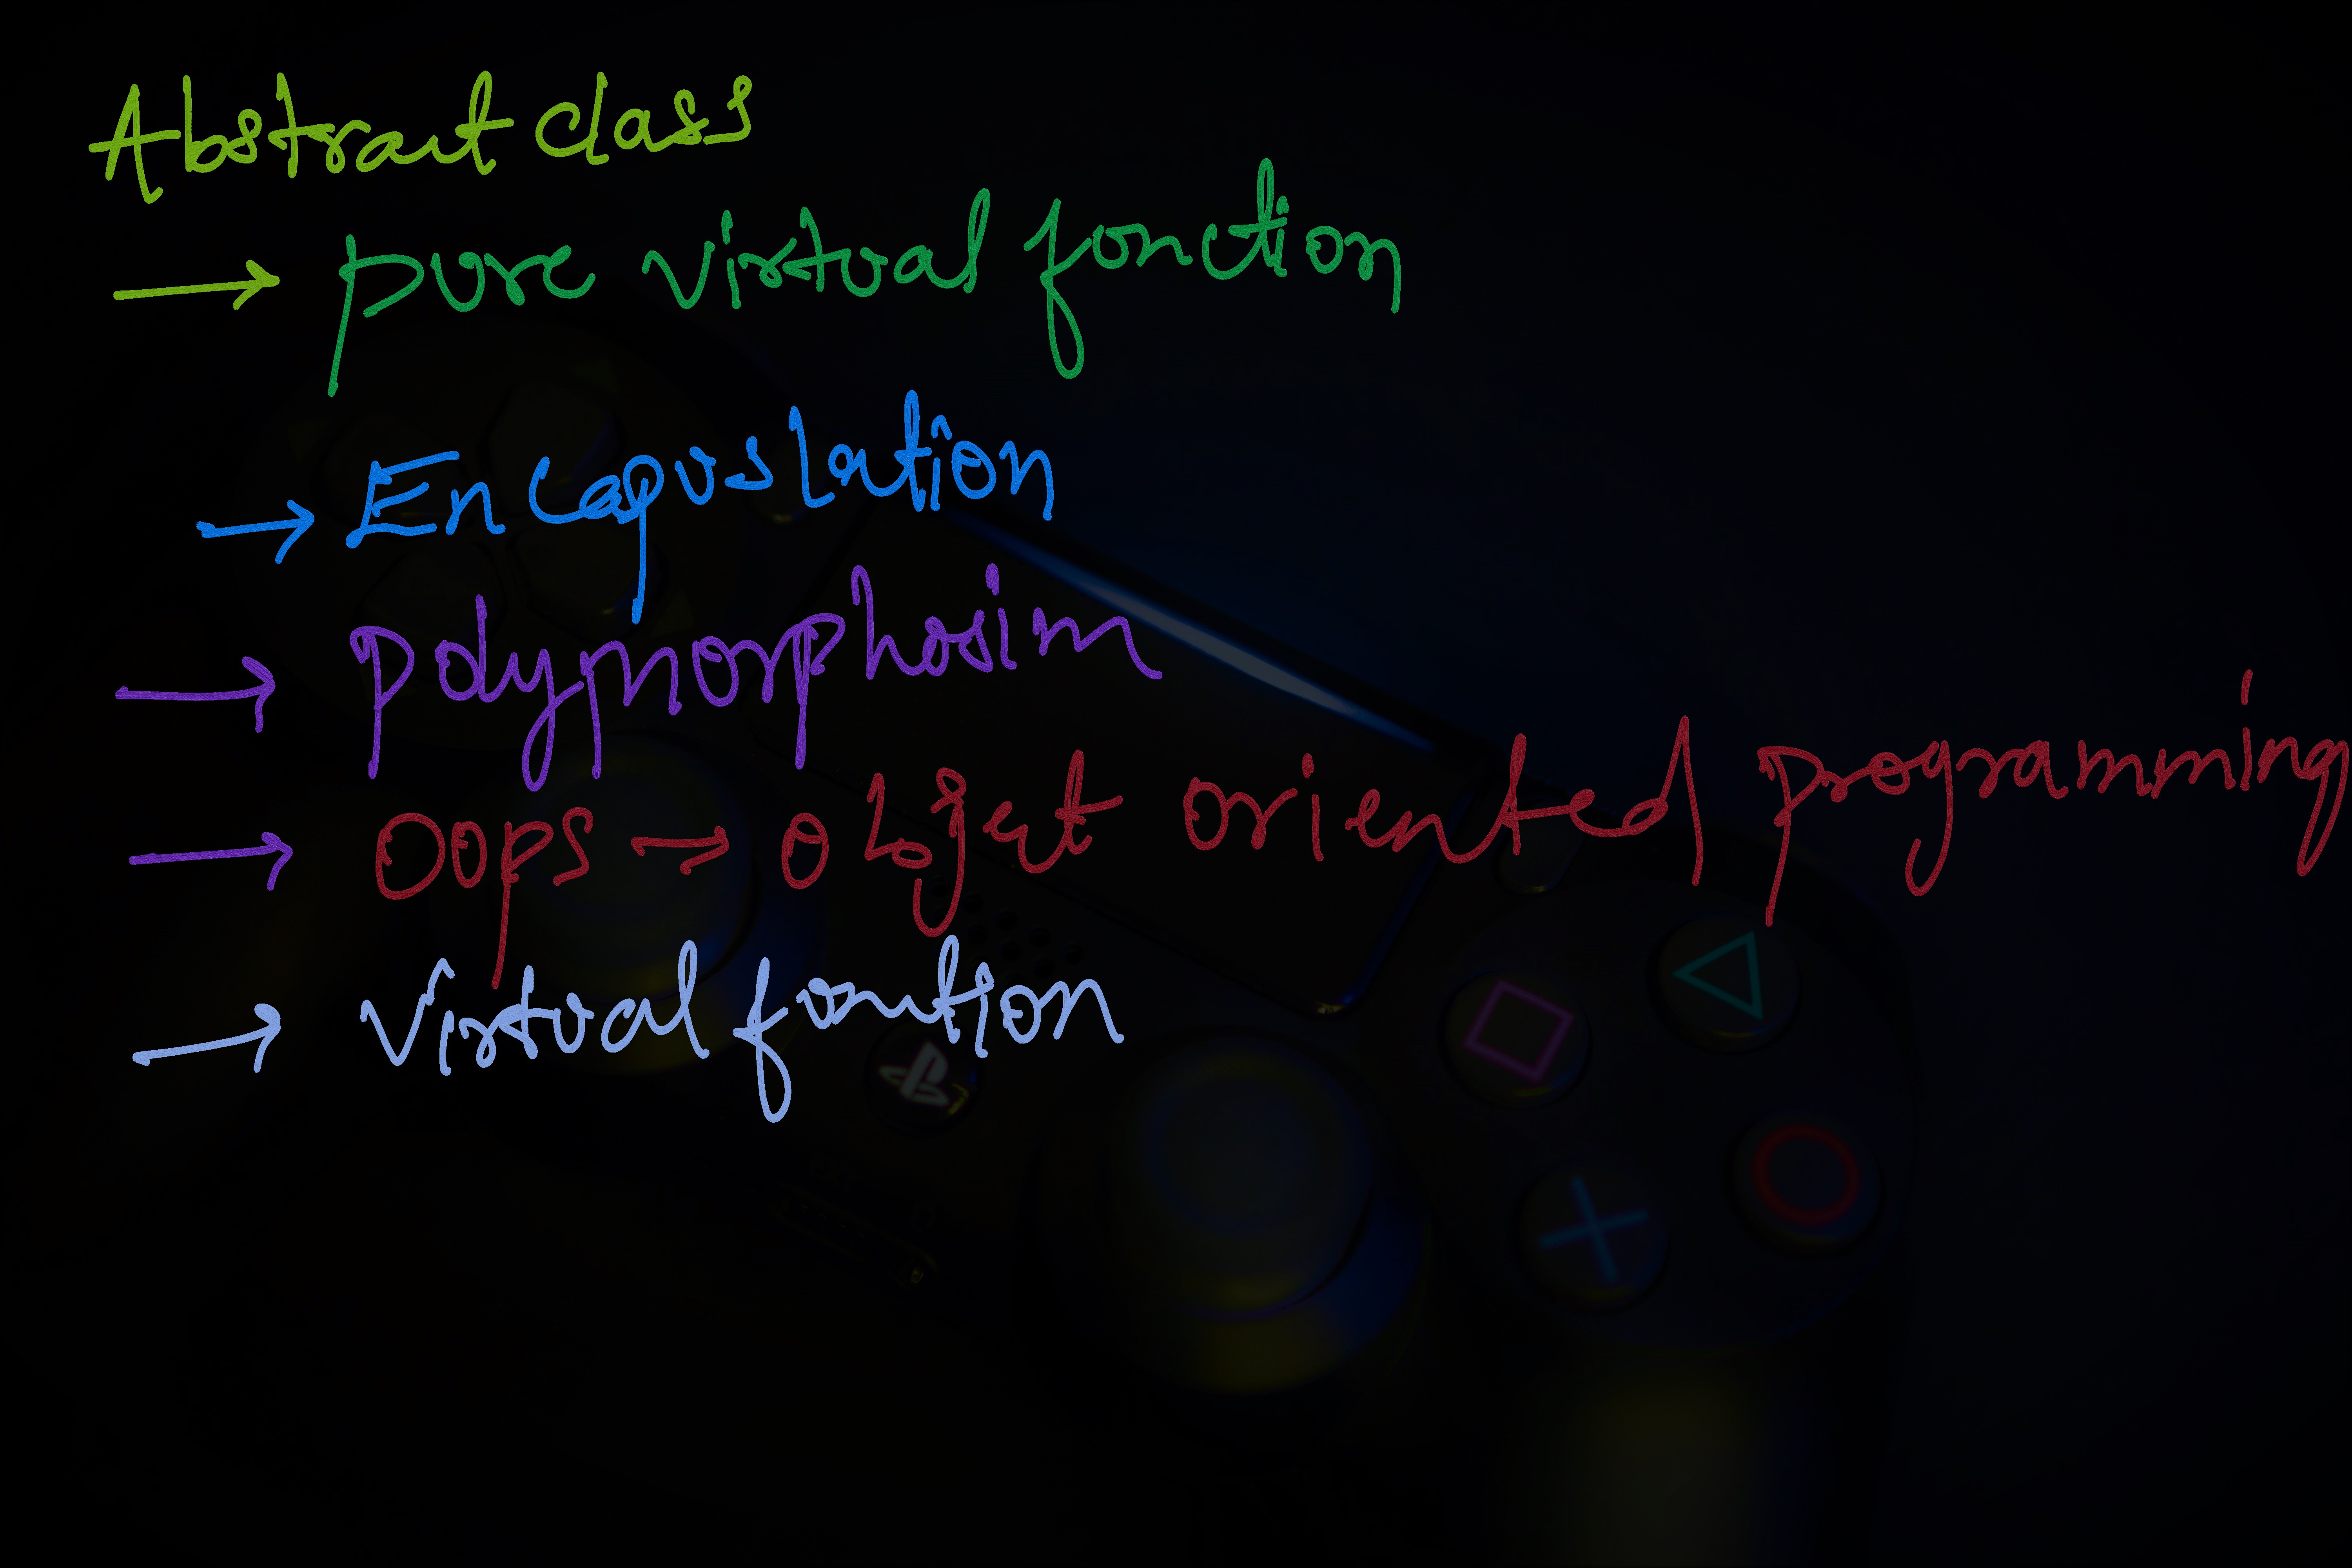 Abstract class
→ pure virtual function
→ Encapuslation
→ polymorphosim
→ OOPS → object oriented programming
→ virtual function